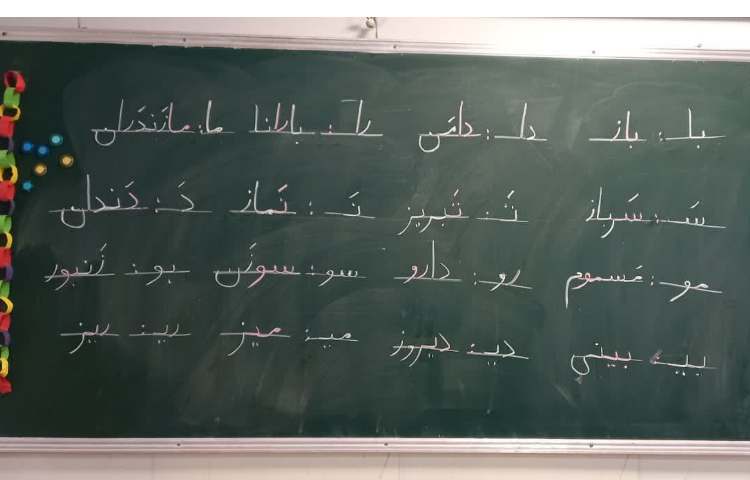 با: باز دا: دامَن را: بارانا ما: مازَندَران
سَـ: سَرباز تَـ: تَبریز نَـ: نَماز دَ: دَندان
مو: مَسموم رو: دارو سو: سوزَن بو: زَنبور
بیـ: بینی دیـ: دیروز میـ: میز ریـ: ریز